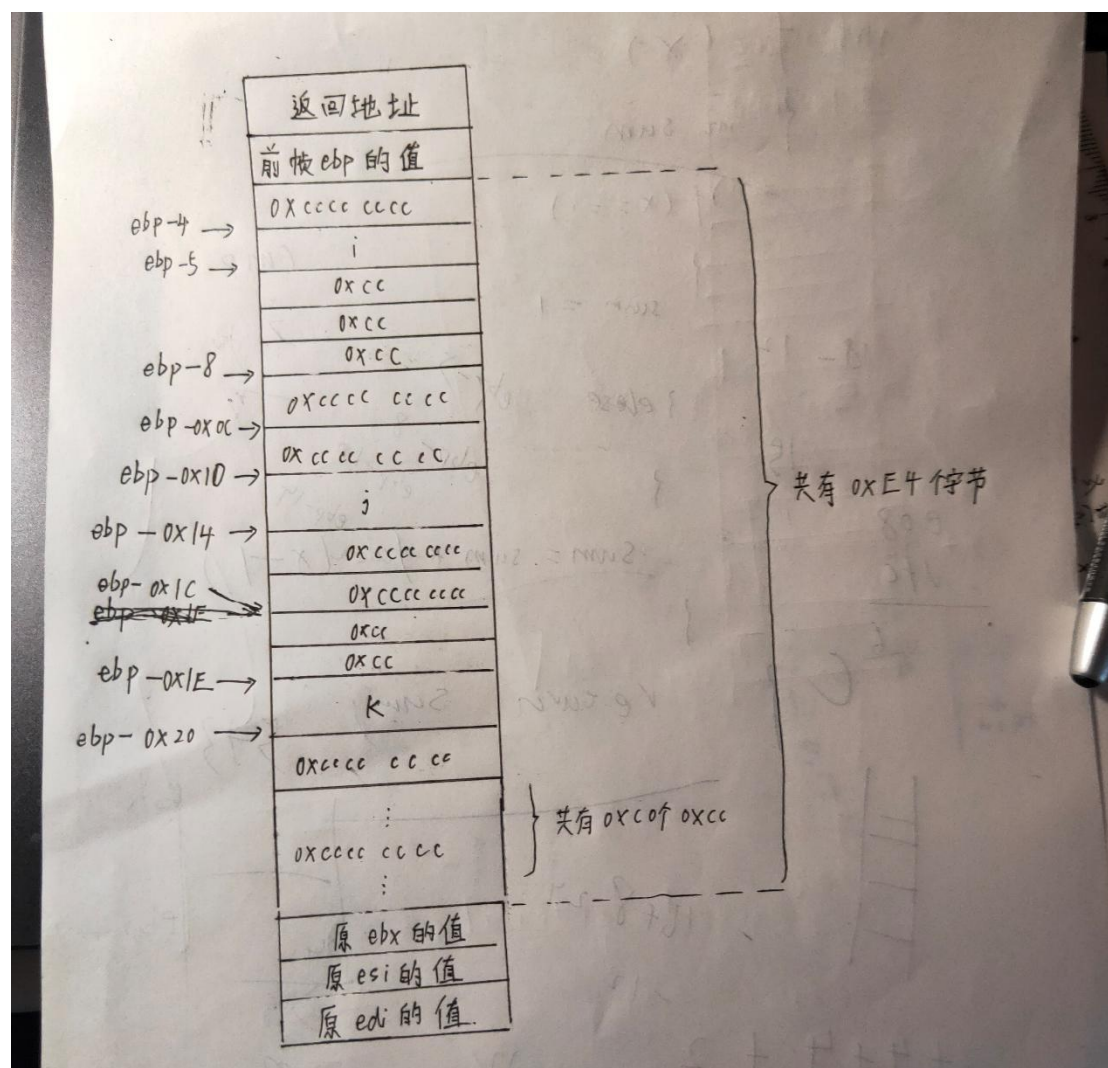 返回地址
前帧ebp的值
0xcccc cccc
ebp-4 →
i
ebp-5 →
0xcc
0xcc
0xcc
ebp-8 →
0xcccc cccc
ebp-0x0C →
0xcccc cccc
ebp-0x10 →
j
ebp-0x14 →
0xcccc cccc
ebp-0x1C
0xcccc cccc
ebp-0x1E
0xcc
0xcc
ebp-0x1E →
K
ebp-0x20 →
0xcccc cccc
共有 0xE4个字节
共有0xC0个 0xcc
0xcccc cccc
原 ebx 的值
原 esi 的值
原 edi 的值